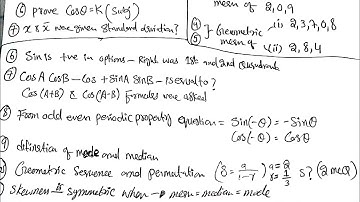 ⑥ prove Cosθ = K (Sutej)
⑦ x & x̄ were given Standard diviation?
mean of
2, 0, 9
④ (ii) 2, 3, 7, 0, 8
⑤ } Geometric
mean of (ii) 2, 8, 4
⑥ Sin is +ve in options – Right was 1st and 2nd Quadrants
⑦ CosA CosB – Cos + SinA SinB – is equal to?
Cos(A+B) & Cos(A-B) Formules were asked
⑧ From odd even periodic property equation = Sin(-θ) = -Sinθ
Cos(-θ) = Cosθ
⑨ defination of mode and median
Geometric Sequence and permutation (S = a/1-r) a=2 r=1/3 S? (2 mcQ)
Skewnen is symmetric when → mean = median = mode